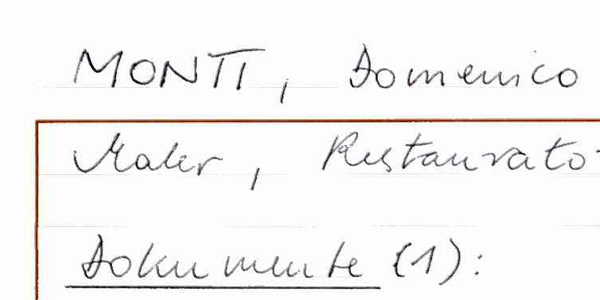 MONTI, Domenico
Maler, Restaurator
Dokumente (1):